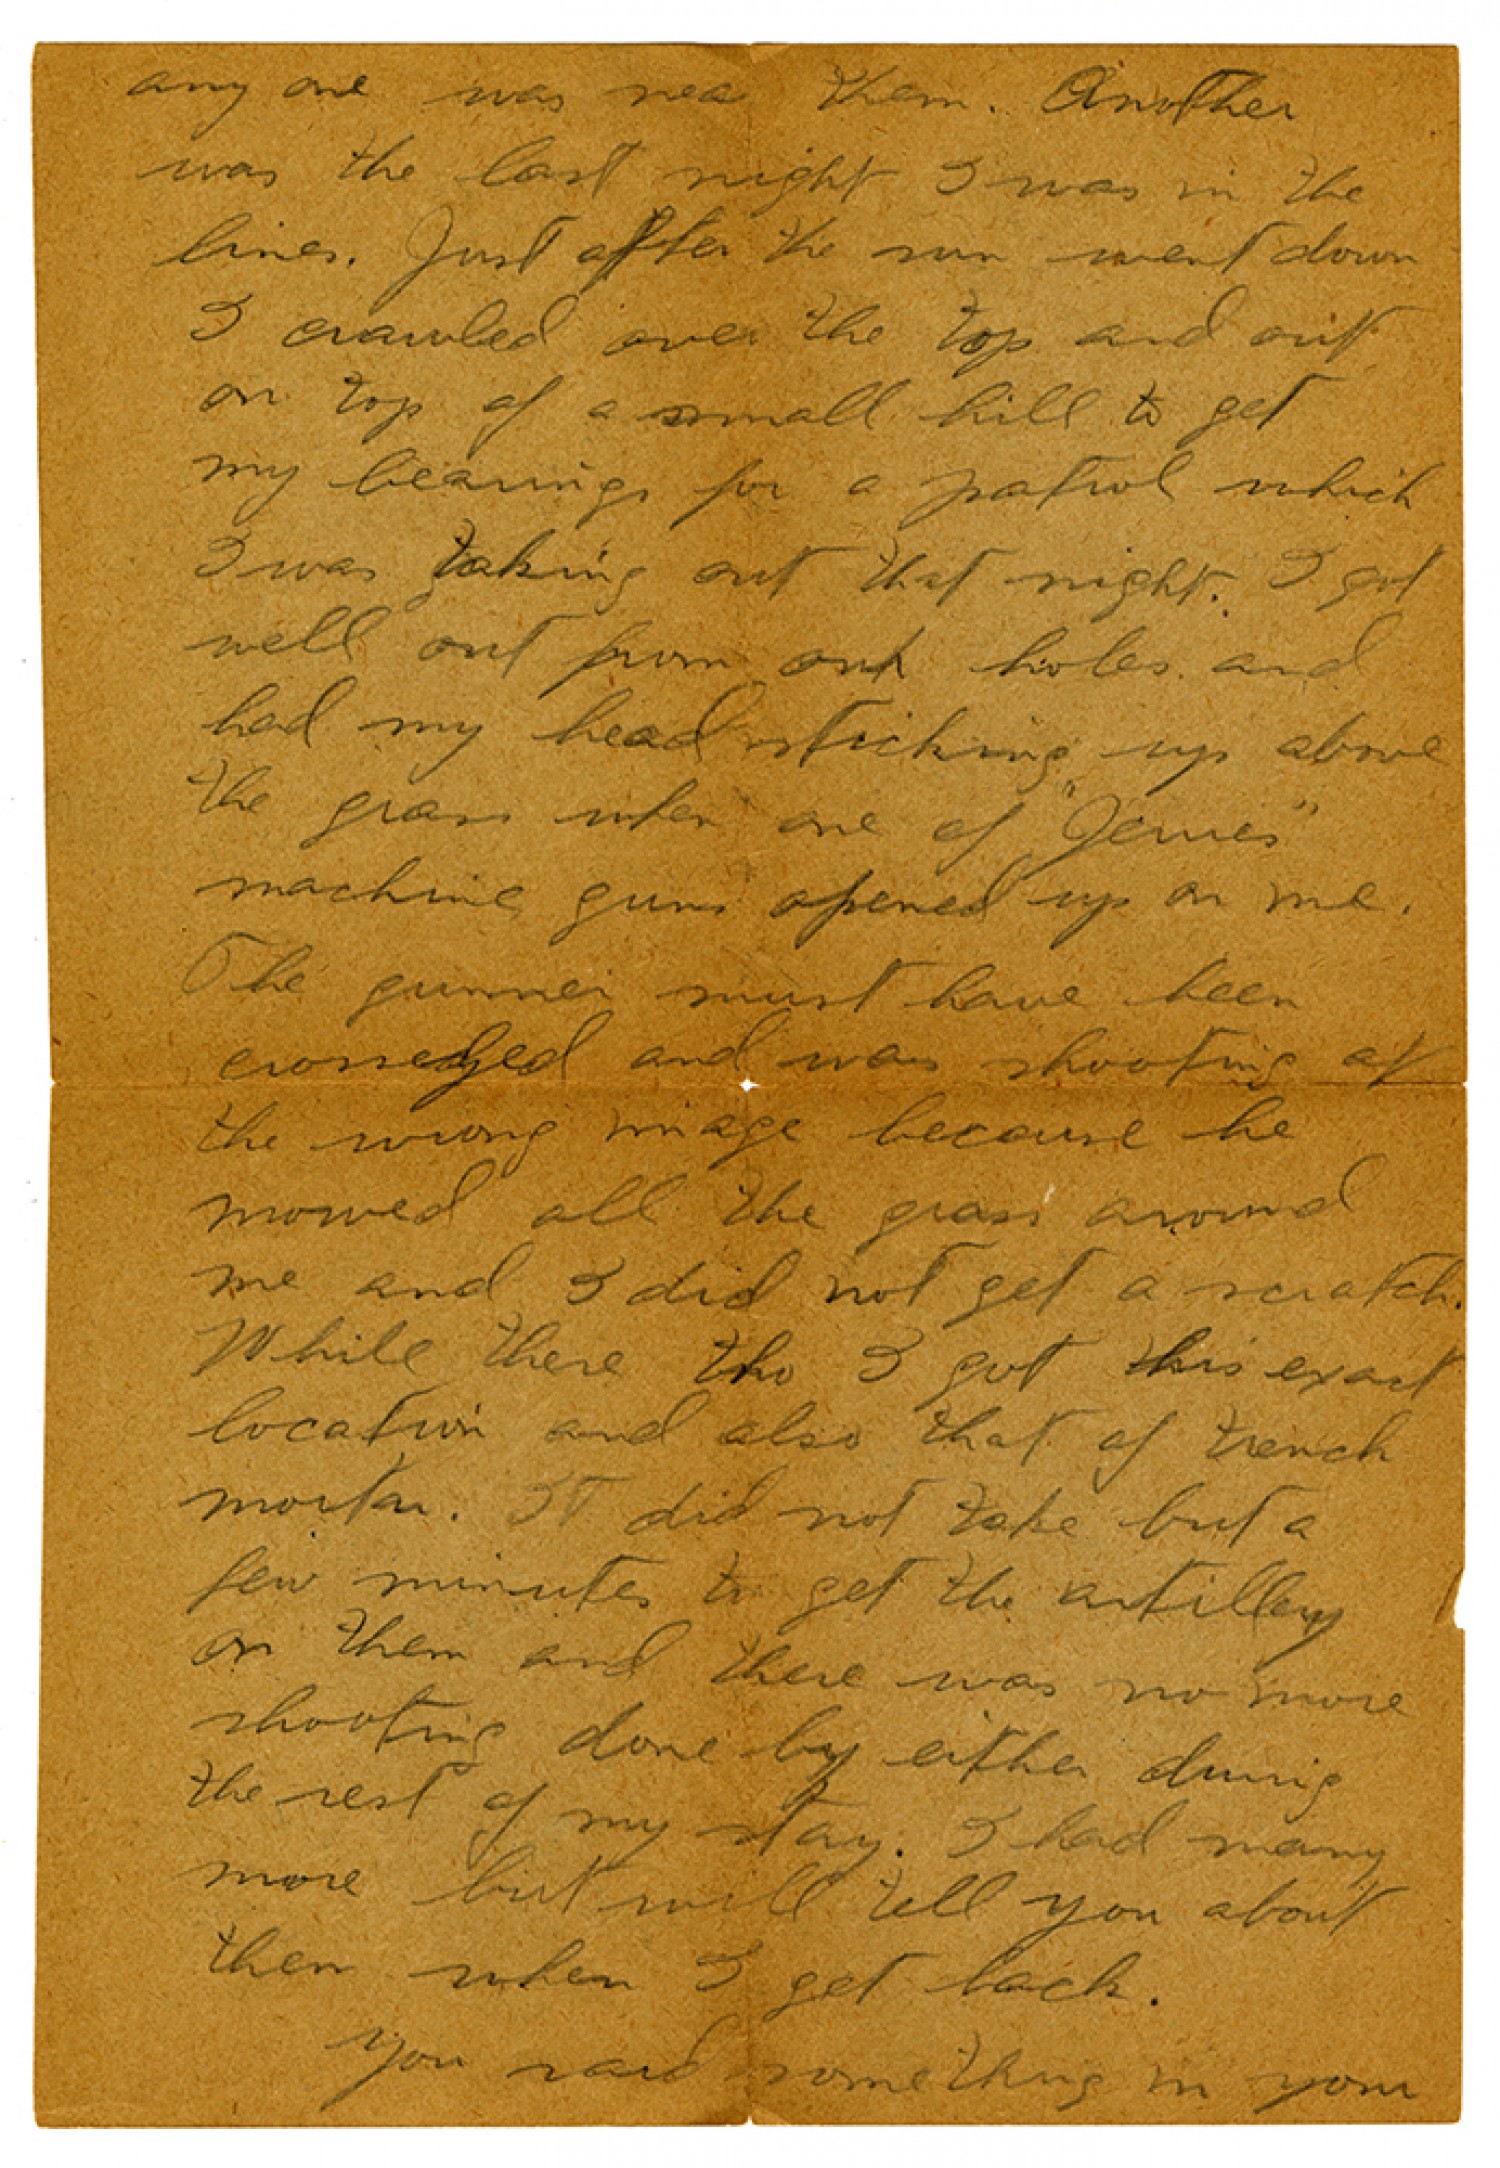 any one was near them. Another
was the last night I was in the
lines. Just after the sun went down
I crawled over the top and out
on top of a small hill to get
my bearings for a patrol which
I was taking out that night. I got
well out from our holes and
had my head sticking up above
the grass when one of "Jerries"
machine guns opened up on me.
The gunner must have been
crosseyed and was shooting at
the wrong image because he
mowed all the grass around
me and I did not get a scratch.
While there tho I got this exact
location and also that of trench
mortar. It did not take but a
few minutes to get the artillery
on them and there was no more
shooting done by either during
the rest of my stay. I had many
more but will tell you about
them when I get back.
You said something in your